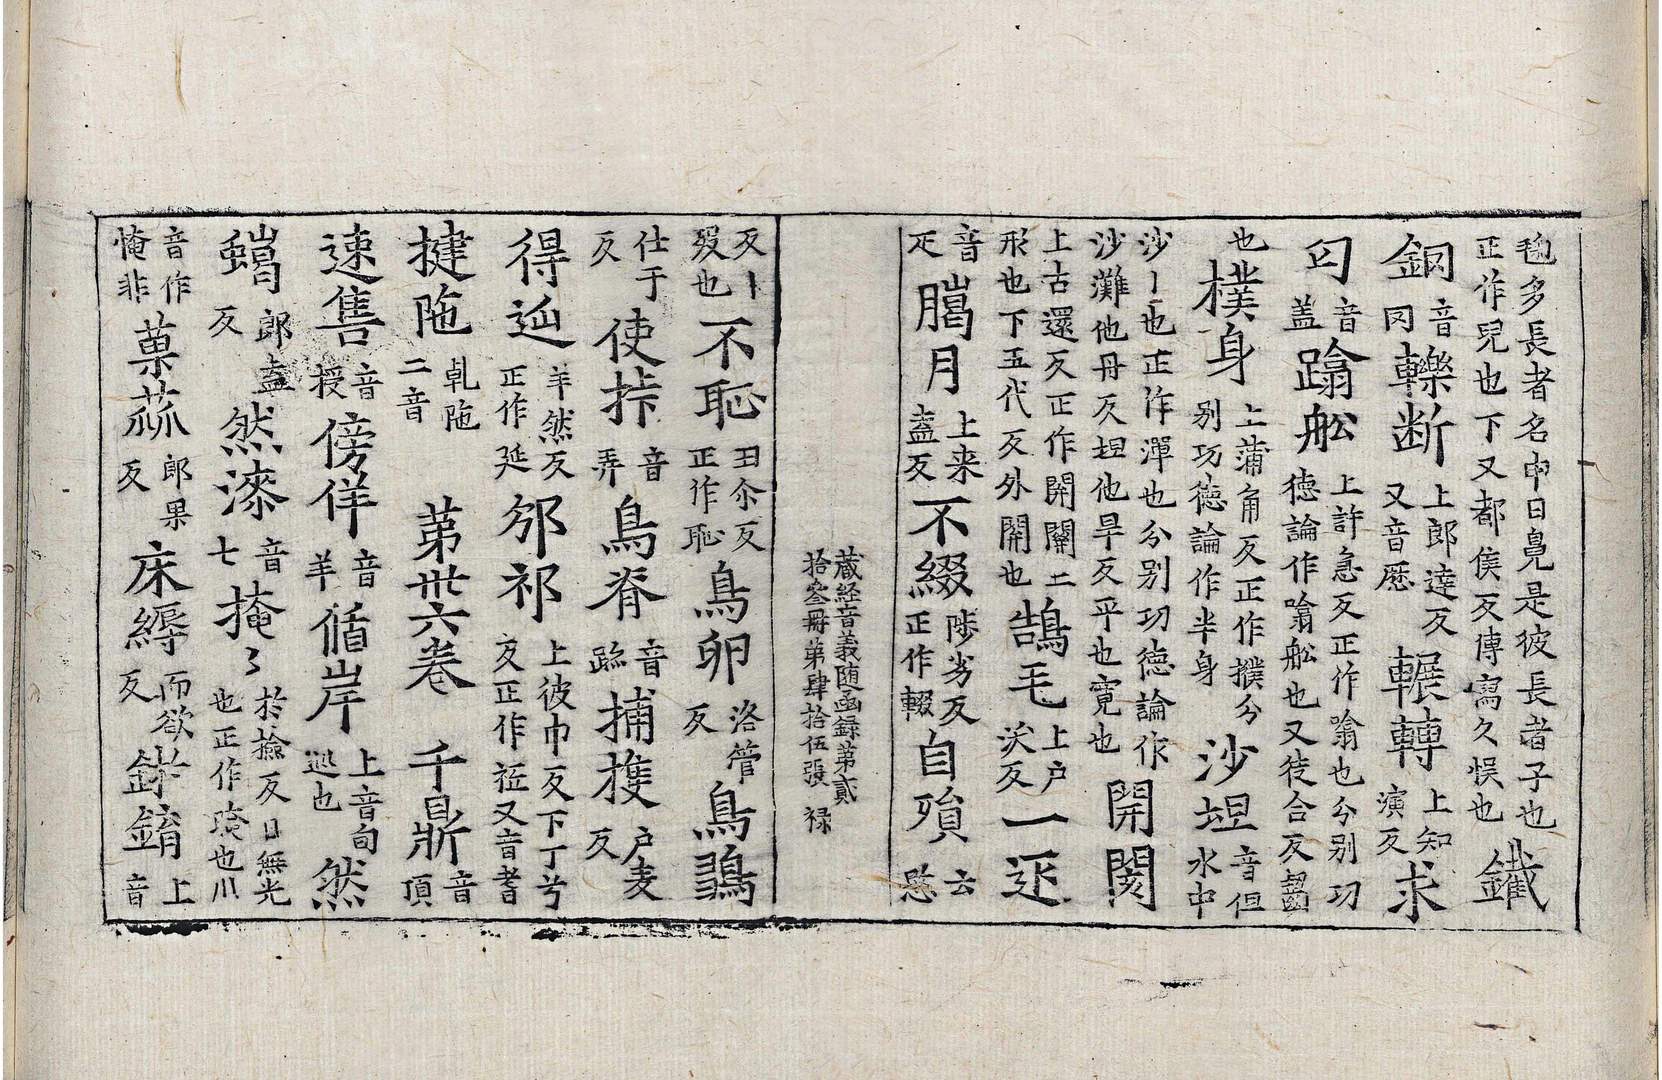 毱多長者名申日鳧是彼長者子也
正作兒也下又都侯反傳寫久悞也 鐵
銅 音同 轢断 上郎達反又音歴 輾轉 上知演反 求
匃 音盖 蹹舩 上許急反正作噏也分别功德論作噏舩也又徒合反
也 樸身 上蒲角反正作撲分别功德論作半身 沙坦 音但水中
沙丨也正作潬也分别功德論作沙灘他丹反坦他旱反平也寛也 開閡
上古還反正作開關二形也下五代反外開也 鵠毛 上户沃反 一迋
音疋 臈月 上来盍反 不綴 陟劣反正作輟 自殞 云愍
藏経音義随函録第貳
拾叄冊第肆拾伍張 禄
反丨殁也 不恥 丑尒反正作恥 鳥卵 洛管反 鳥鶸
仕于反 使挊 音弄 鳥脊 音跡 捕擭 户麦反
得𨒂 羊然反正作延 邠祁 上彼巾反下丁兮反正作祗又音耆
揵陁 乹陁二音 第卅六卷 千鼎 音頂
速售 音授 傍佯 音羊 循岸 上音旬巡也 然
蠟 郎盍反 然漆 音七 掩々 於撿反日無光也正作晻也川
音作俺非 菓蓏 郎果反 床縟 而欲反 錺錥 上音